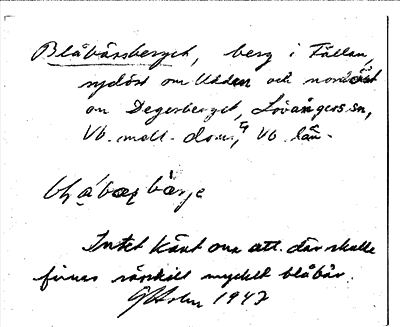 Blåbärsberget, berg i Fällan,
sydöst om Udden och nordöst
om Degerberget, Lövångers sn,
Vb. mell. doms., Vb. län.
blå̀bæʂbærje
Intet känt om att där skulle
finnas särskilt mycket blåbär.
1947